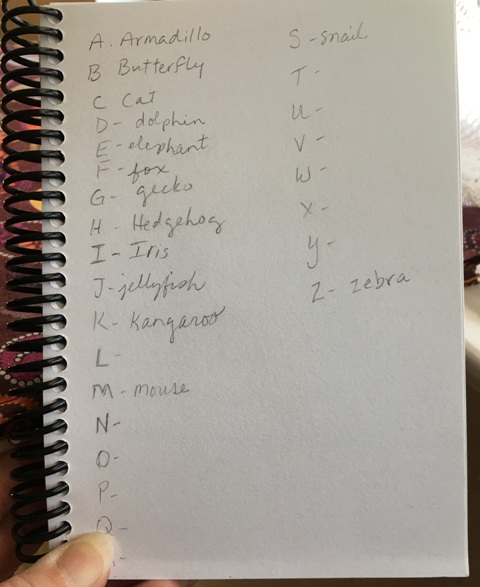 A. Armadillo
B Butterfly
C Cat
D- dolphin
E- elephant
F- fox
G- gecko
H- Hedgehog
I- Iris
J- jellyfish
K- Kangaroo
L-
M- mouse
N-
O-
P-
Q-
S- snail
T-
U-
V-
W-
X-
y-
Z- zebra